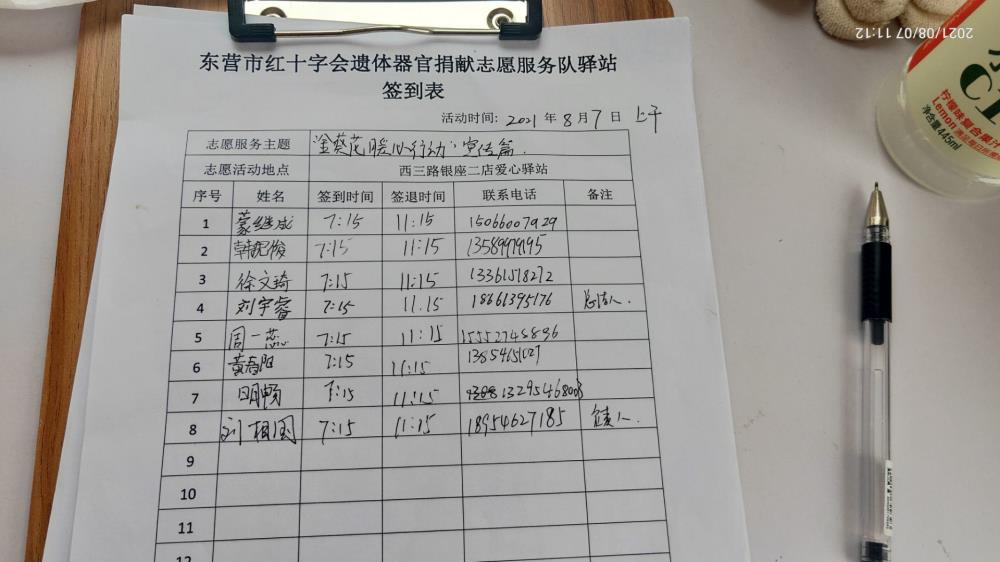 东营市红十字会遗体器官捐献志愿服务队驿站
签到表
活动时间: 2021 年 8 月 7 日 上午
志愿服务主题 "金葵花暖心行动"宣传篇
志愿活动地点 西三路银座二店爱心驿站
序号 姓名 签到时间 签退时间 联系电话 备注
1 蒙继成 7:15 11:15 15066007929
2 7:15 11:15 13589979195
3 徐文琦 7:15 11:15 13361518272
4 刘宇睿 7:15 11.15 18661395176
5 周一蕊 7:15 11:15 15552748896
6 黄春阳 7:15 11:15 13854151027
7 明畅 7:15 11:15 13295468003
8 刘相国 7:15 11:15 18954627185
9
10
11
12
2021/08/07 11:12
柠檬味复合果汁
Lemon
净含量445ml